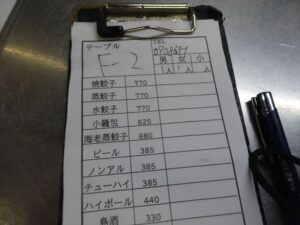 テーブル
F-2
男 女 小
人 人 人
焼餃子 770
蒸餃子 770
水餃子 770
小籠包 825
海老蒸餃子 880
ビール 385
ノンアル 385
チューハイ 385
ハイボール 440
烏酒 330